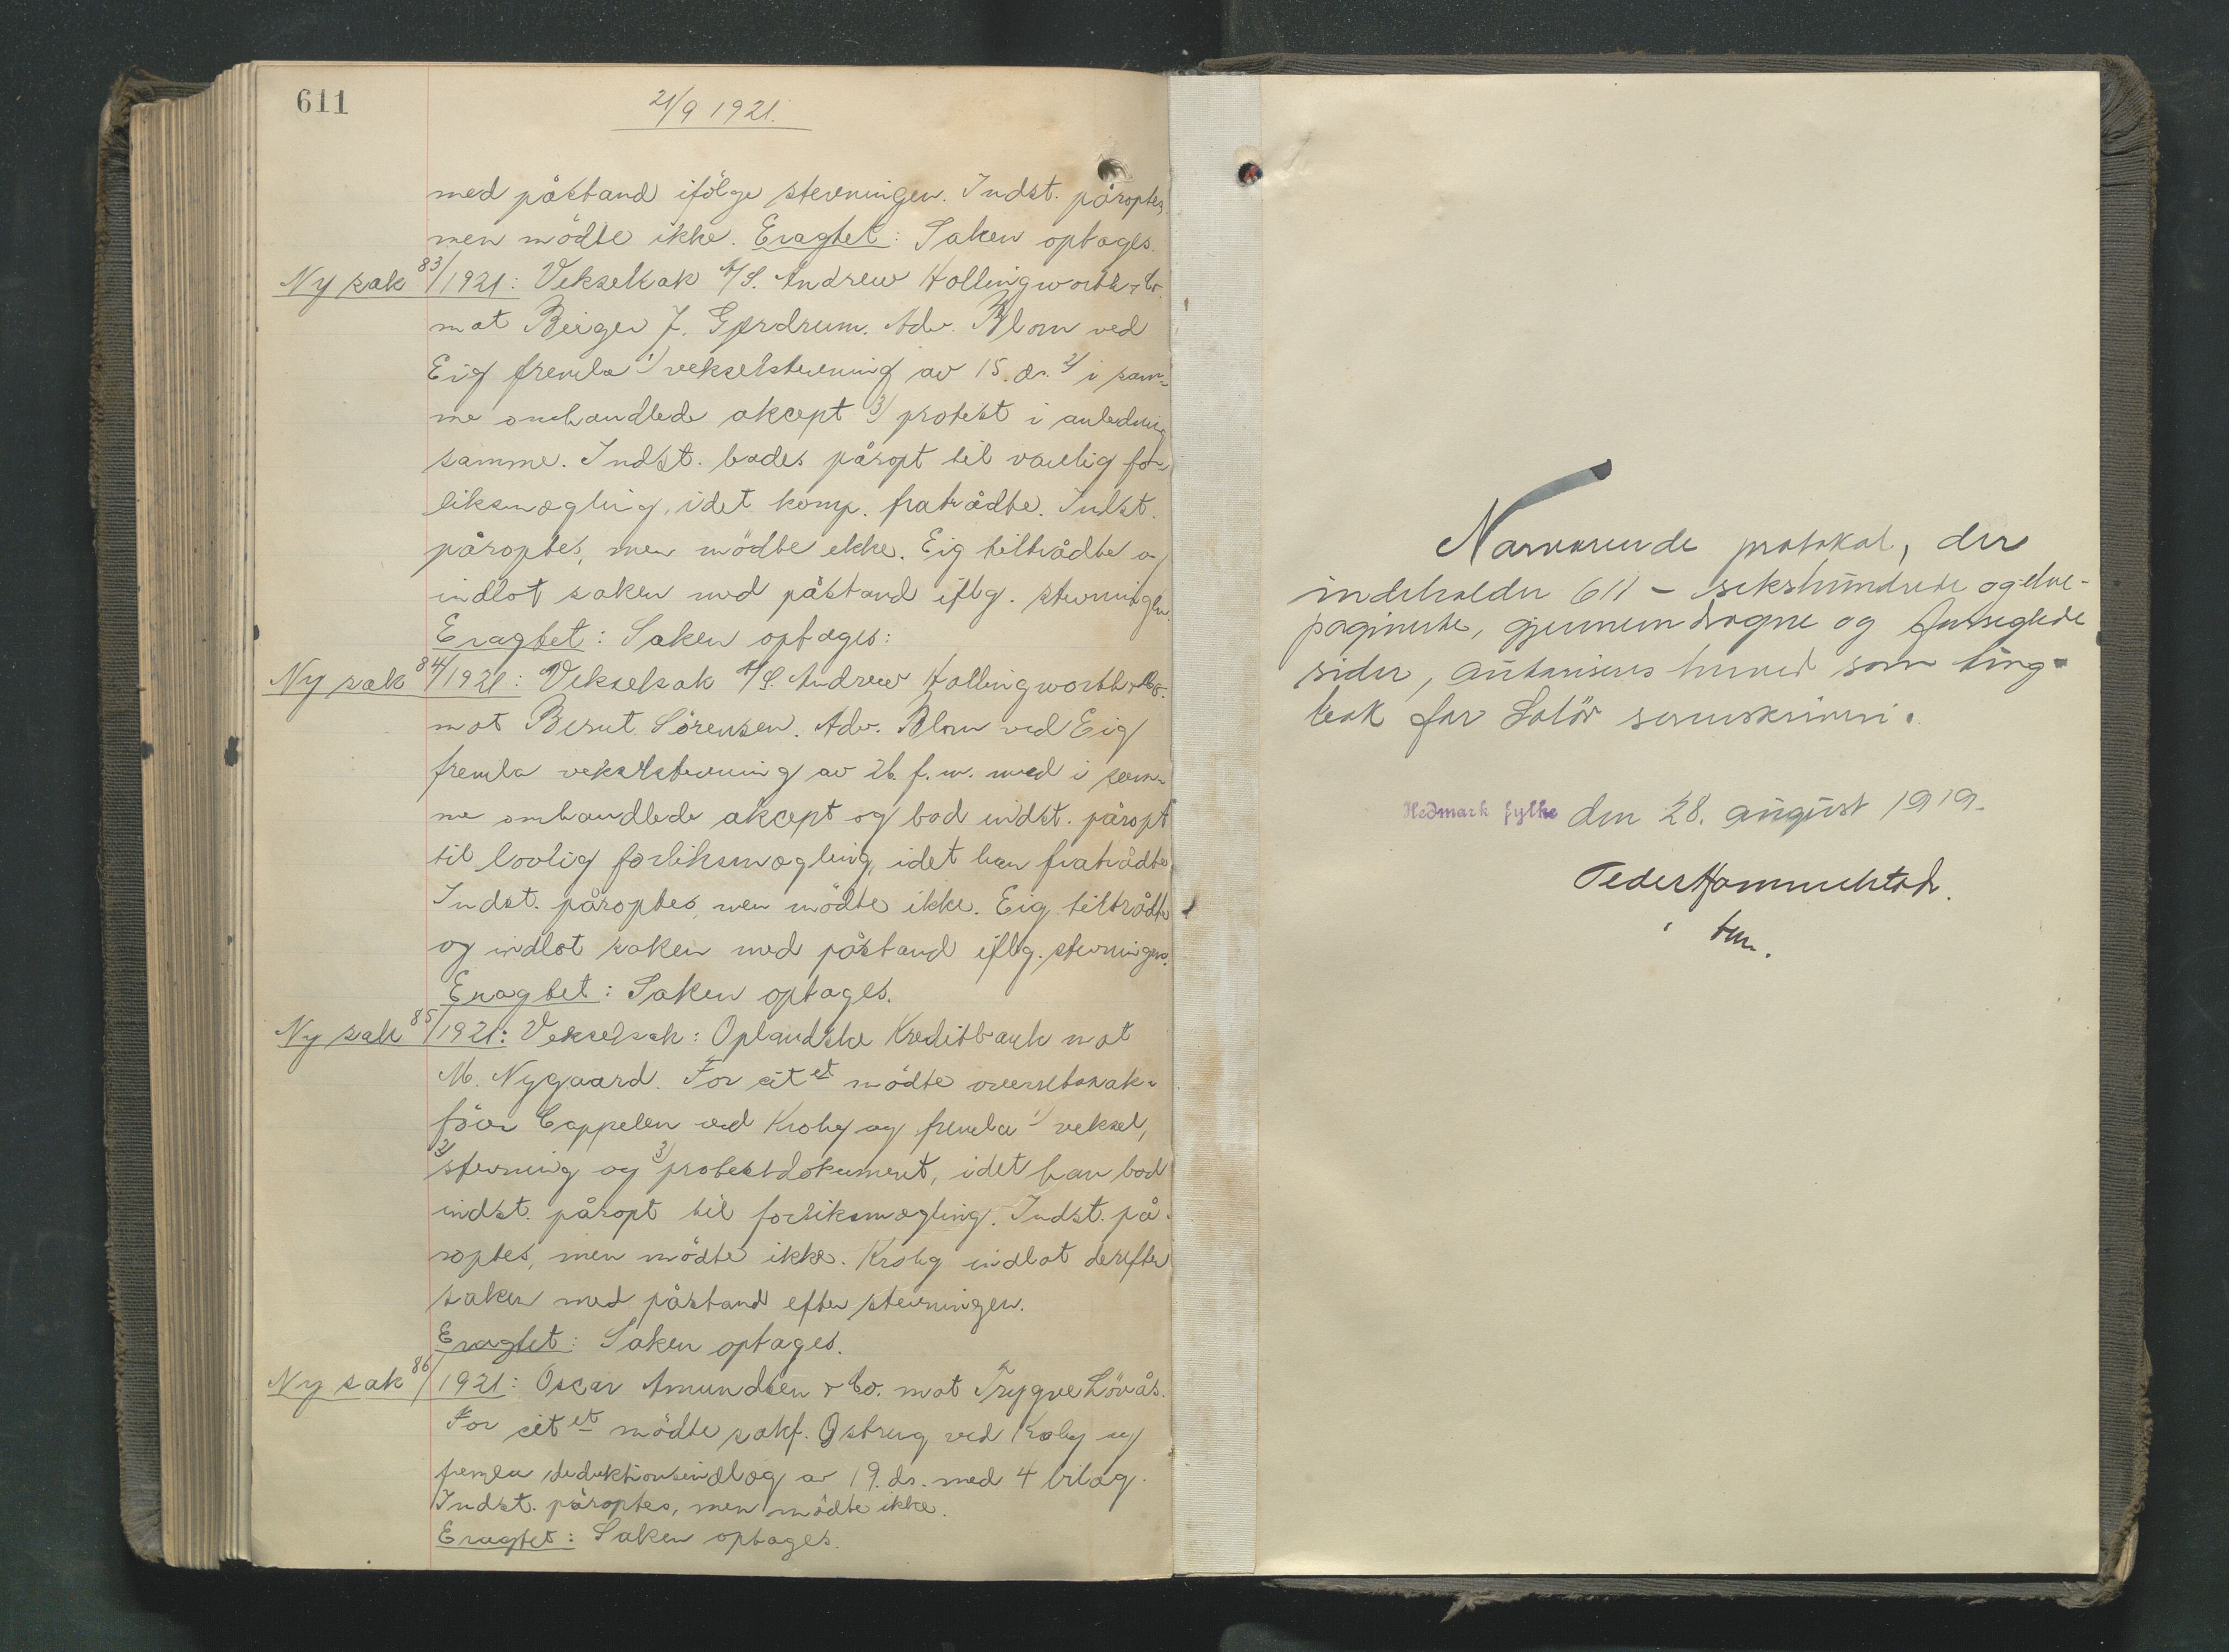 611
21/9 1921.
med påstand ifölge stevningen. Indst. påroptes,
men mödte ikke. Eragtet: Saken optages.
Ny sak 83/1921: Vekselsak A/S. Andrew Hollingworth & Co.
mot Birger J. Gjerdrum. Adv. Blom ved
Eig fremla 1) vekselstevning av 15. ds. 2) i sam-
me omhandlede aksept 3) protest i anledning
samme. Indst. bades påropt til lovlig for-
liksmægling, idet komp. fratrådte. Indst.
påroptes, men mödte ikke. Eig tiltrådte og
indlot saken med påstand iflg. stevningen.
Eragtet: Saken optages:
Ny sak 84/1921: Vekselsak A/S. Andrew Hollingworth & Co.
mot Bernt Sörensen. Adv. Blom ved Eig
fremla vekselstevning av 26. f. m. med i sam-
me omhandlede aksept og bad indst. påropt
til lovlig forliksmægling, idet han fratrådte.
Indst. påroptes, men mödte ikke. Eig tiltrådte
og indlot saken med påstand iflg. stevningen.
Eragtet: Saken optages.
Ny sak 85/1921: Vekselsak: Oplandske Kreditbank mot
M. Nygaard. For cit et mödte overretssak-
förer Cappelen ved Krohg og fremla 1) veksel,
2) stevning og 3) protestdokument, idet han bad
indst. påropt til forliksmægling. Indst. på-
roptes, men mödte ikke. Krohg indlot derefter
saken med påstand efter stevningen.
Eragtet: Saken optages.
Ny sak 86/1921: Oscar Amundsen & Co. mot Trygve Lövås.
For cit et mödte sakf. Östreng ved Krohg og
fremla deduktionsindlæg av 19. ds. med 4 bilag.
Indst. påroptes, men mödte ikke.
Eragtet: Saken optages.
Nærværende protokol, der
indeholder 611 - sekshundrede og elve -
paginerte, gjennemdragne og forseglede
sider, autoriseres herved som ting-
bok for Solör sorenskriveri.
Hedmark fylke den 28. august 1919.
Peder